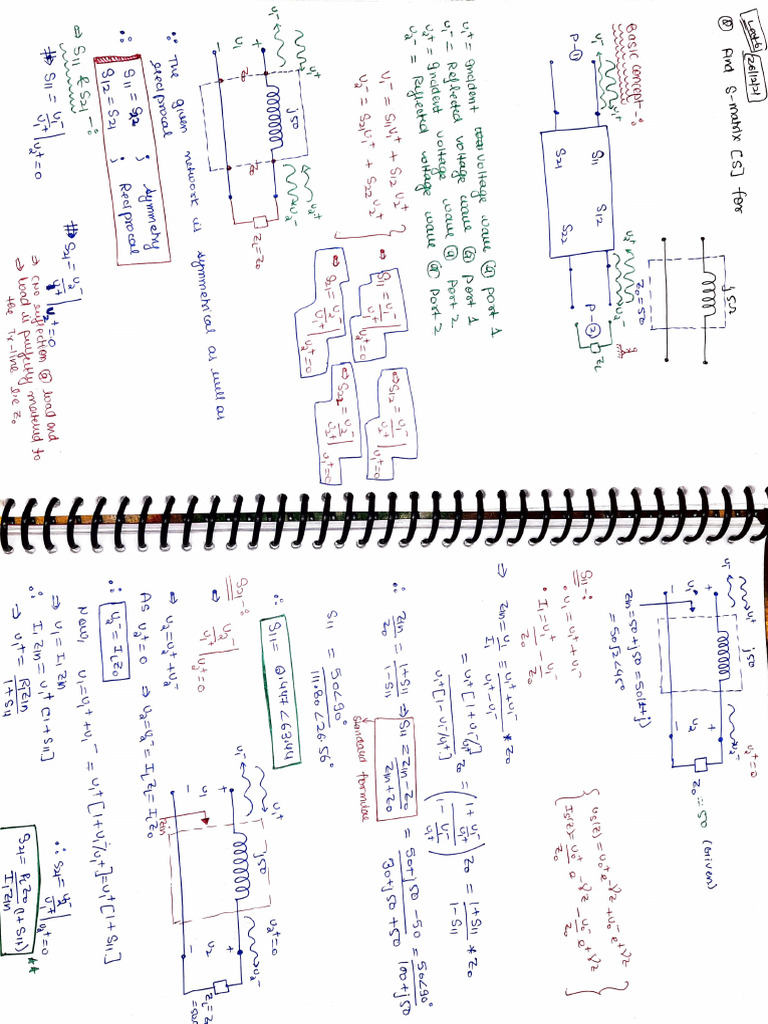 26/12/21
Q) Find S-matrix [S] for
j50
Z0=50
Basic concept -:
P-①
v1- v1+
S11 S12
S21 S22
v2+ v2-
P-②
ZL
v1+ = incident voltage wave @ port 1
v1- = Reflected voltage wave @ port 1
v2+ = incident voltage wave @ port 2
v2- = Reflected voltage wave @ port 2
v1- = S11 v1+ + S12 v2+
v2- = S21 v1+ + S22 v2+
⇒ S11 = v1-/v1+ | v2+=0
⇒ S12 = v1-/v2+ | v1+=0
⇒ S21 = v2-/v1+ | v2+=0
⇒ S22 = v2-/v2+ | v1+=0
v1- v1+
+ v1 -
Z0
j50
Z0
v2+ v2-
ZL=Z0
∵ The given network is symmetrical as well as
reciprocal
∴ S11 = S22 ; Symmetry
S12 = S21 ; Reciprocal
⇒ S11 & S21 -:
# S11 = v1-/v1+ | v2+=0
# S21 = v2-/v1+ | v2+=0
⇒ (No reflection @ load and
⇒ load is perfectly matched to
the Tx-line i.e Z0
v1- v1+
+ v1 -
j50
+ v2 -
v2+=0
v2-
Z0=50 (Given)
Zin=50+j50 = 50(1+j)
= 50√2∠45°
S11 -:
• v1 = v1+ + v1-
• I1 = v1+/Z0 - v1-/Z0
{ Vs(z) = v0+ e-γz + v0- e+γz
Is(z) = v0+/Z0 e-γz - v0-/Z0 e+γz }
⇒ Zin = v1/I1 = (v1+ + v1-)/(v1+ - v1-) * Z0
= v1+[1+v1-/v1+]/v1+[1-v1-/v1+] Z0 = ((1+v1-/v1+)/(1-v1-/v1+)) Z0 = (1+S11)/(1-S11) * Z0
∴ Zin/Z0 = (1+S11)/(1-S11) ⇒ S11 = (Zin-Z0)/(Zin+Z0) = (50+j50-50)/(50+j50+50) = 50∠90°/(100+j50)
Standard formulae
S11 = 50∠90°/111.80∠26.56°
∴ S11 = 0.447∠63.44
S21 -: v2-/v1+ | v2+=0
⇒ v2 = v2+ + v2-
As v2+=0 ⇒ v2=v2-=ILZL=I1Z0
∴ v2-=I1Z0
Now, v1 = v1+ + v1- = v1+[1+v1-/v1+] = v1+[1+S11]
⇒ v1 = I1Zin
∴ I1Zin = v1+[1+S11]
⇒ v1+ = I1Zin/(1+S11)
v1- v1+
+ v1 -
Zin
j50
+ v2 -
v2+=0
v2-
ZL=Z0
=50Ω
∴ S21 = v2-/v1+ | v2+=0
S21 = I1Z0/I1Zin (1+S11)